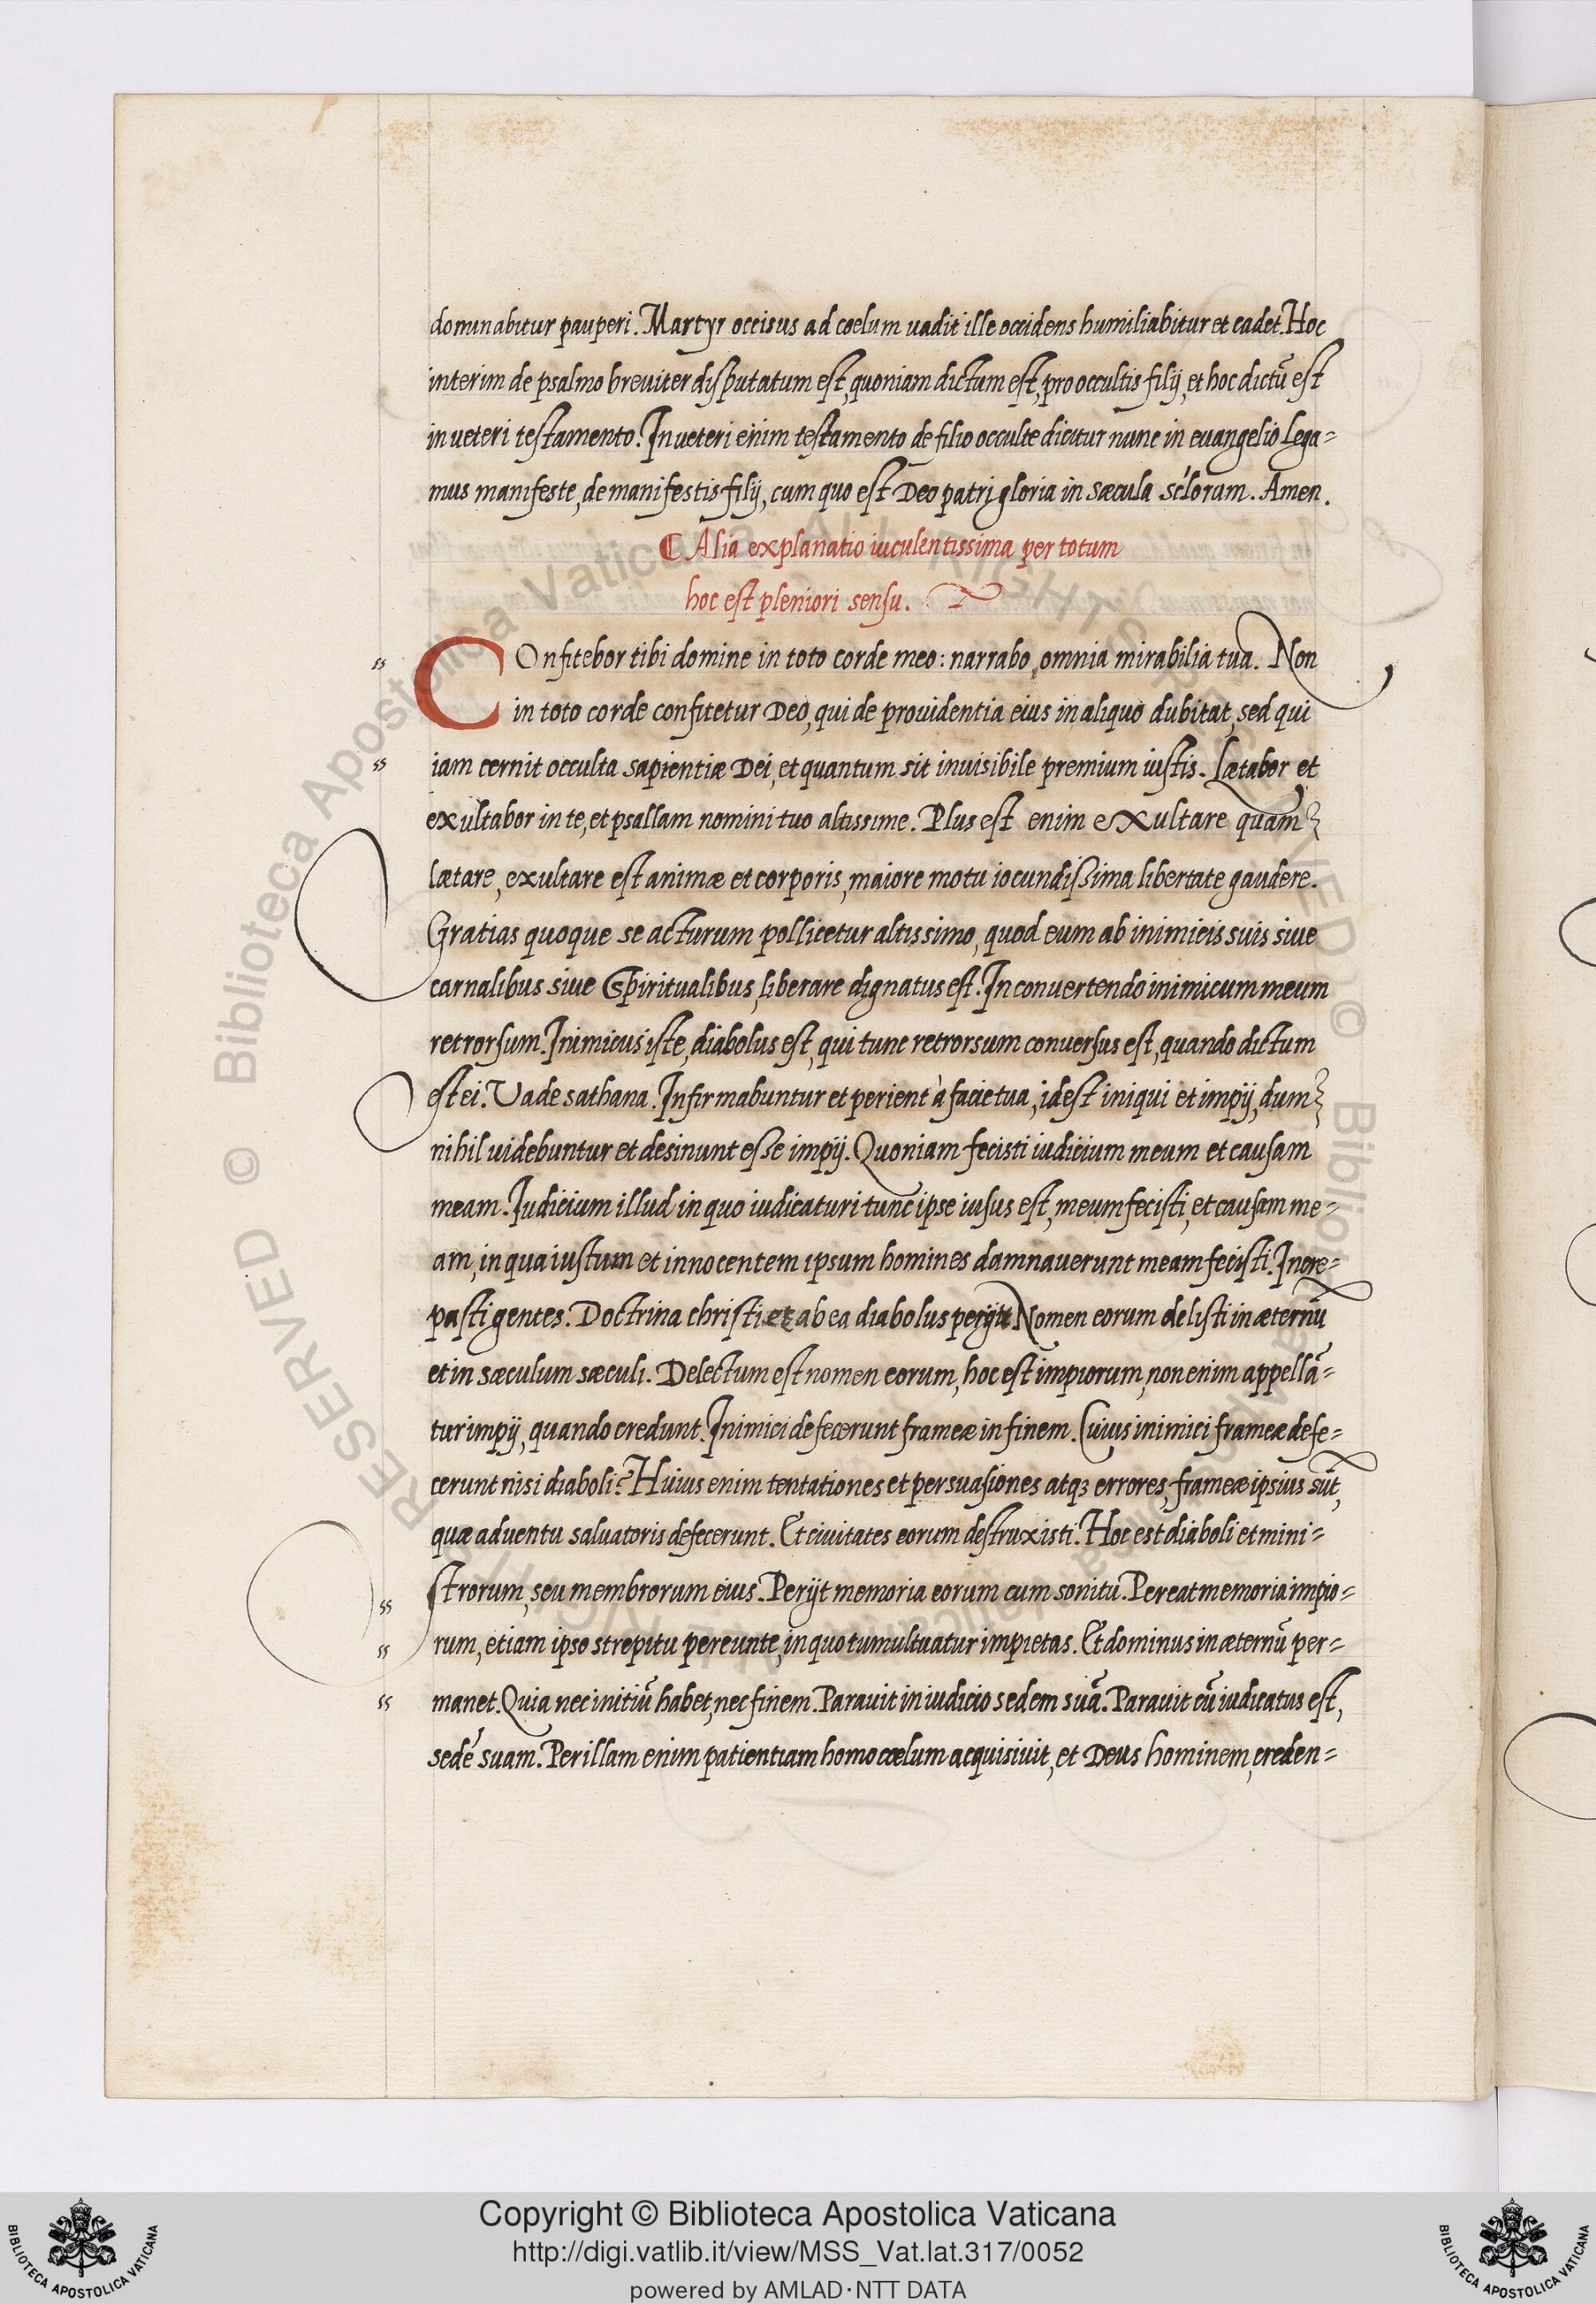 dominabitur pauperi. Martyr occisus ad coelum uadit ille occidens humiliabitur et cadet. Hoc
interim de psalmo breuiter disputatum est, quoniam dictum est, pro occultis filij, et hoc dictū est
in ueteri testamento. In ueteri enim testamento de filio occulte dicitur nunc in euangelio Lega=
mus manifeste, de manifestis filij, cum quo est Deo patri gloria in sæcula sćloram. Amen.
¶ Alia explanatio iuculentissima per totum
hoc est pleniori sensu.
COnfitebor tibi domine in toto corde meo: narrabo, omnia mirabilia tua. Non
in toto corde confitetur Deo, qui de prouidentia eius in aliquo dubitat, sed qui
iam cernit occulta sapientiæ Dei, et quantum sit inuisibile premium iustis. Lætabor et
exultabor in te, et psallam nomini tuo altissime. Plus est enim exultare quam
lætare, exultare est animæ et corporis, maiore motu iocundissima libertate gaudere.
Gratias quoque se acturum pollicetur altissimo, quod eum ab inimicis suis siue
carnalibus siue Spiritualibus, liberare dignatus est. In conuertendo inimicum meum
retrorsum. Inimicus iste, diabolus est, qui tunc retrorsum conuersus est, quando dictum
est ei. Vade sathana. Infirmabuntur et perient à facie tua, idest iniqui et impij, dum
nihil uidebuntur et desinunt esse impij. Quoniam fecisti iudicium meum et causam
meam. Iudicium illud in quo iudicaturi tunc ipse iusus est, meum fecisti, et causam me=
am, in qua iustum et innocentem ipsum homines damnauerunt meam fecisti. Incre=
pasti gentes. Doctrina christi et ab ea diabolus perijt Nomen eorum delisti in æternū
et in sæculum sæculi. Delectum est nomen eorum, hoc est impiorum, non enim appellā=
tur impij, quando credunt. Inimici defecerunt frameæ in finem. Cuius inimici frameæ defe=
cerunt nisi diaboli? Huius enim tentationes et persuasiones atqꝫ errores, frameæ ipsius sūt,
quæ aduentu saluatoris defecerunt. Et ciuitates eorum destruxisti. Hoc est diaboli et mini=
strorum, seu membrorum eius. Perijt memoria eorum cum sonitu. Pereat memoria impio=
rum, etiam ipso strepitu pereunte, in quo tumultuatur impietas. Et dominus in æternū per=
manet. Quia nec initiū habet, nec finem. Parauit in iudicio sedem suā. Parauit cū iudicatus est,
sedē suam. Per illam enim patientiam homo cœlum acquisiuit, et Deus hominem, creden=
Copyright © Biblioteca Apostolica Vaticana
http://digi.vatlib.it/view/MSS_Vat.lat.317/0052
powered by AMLAD·NTT DATA